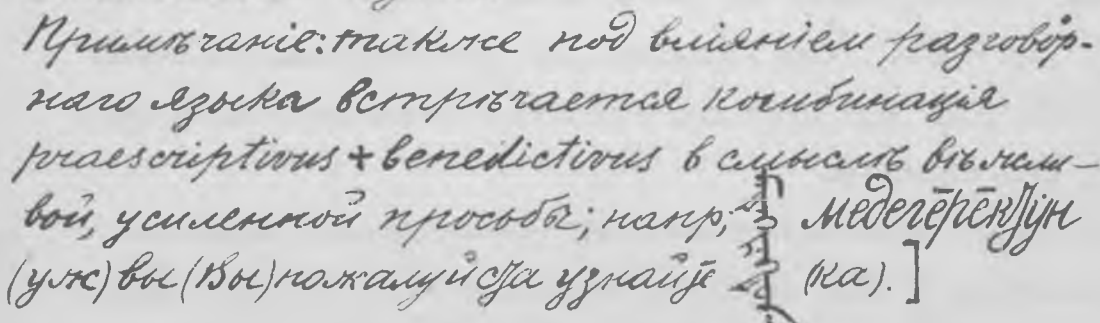 Примѣчаніе: также под вліяніем разговор-
наго языка встрѣчается комбинація
praescriptivus + benedictivus в смыслѣ вѣжли-
вой, усиленной просьбы; напр;
(уж) вы (Вы) пожалуйста узнайте (ка).]